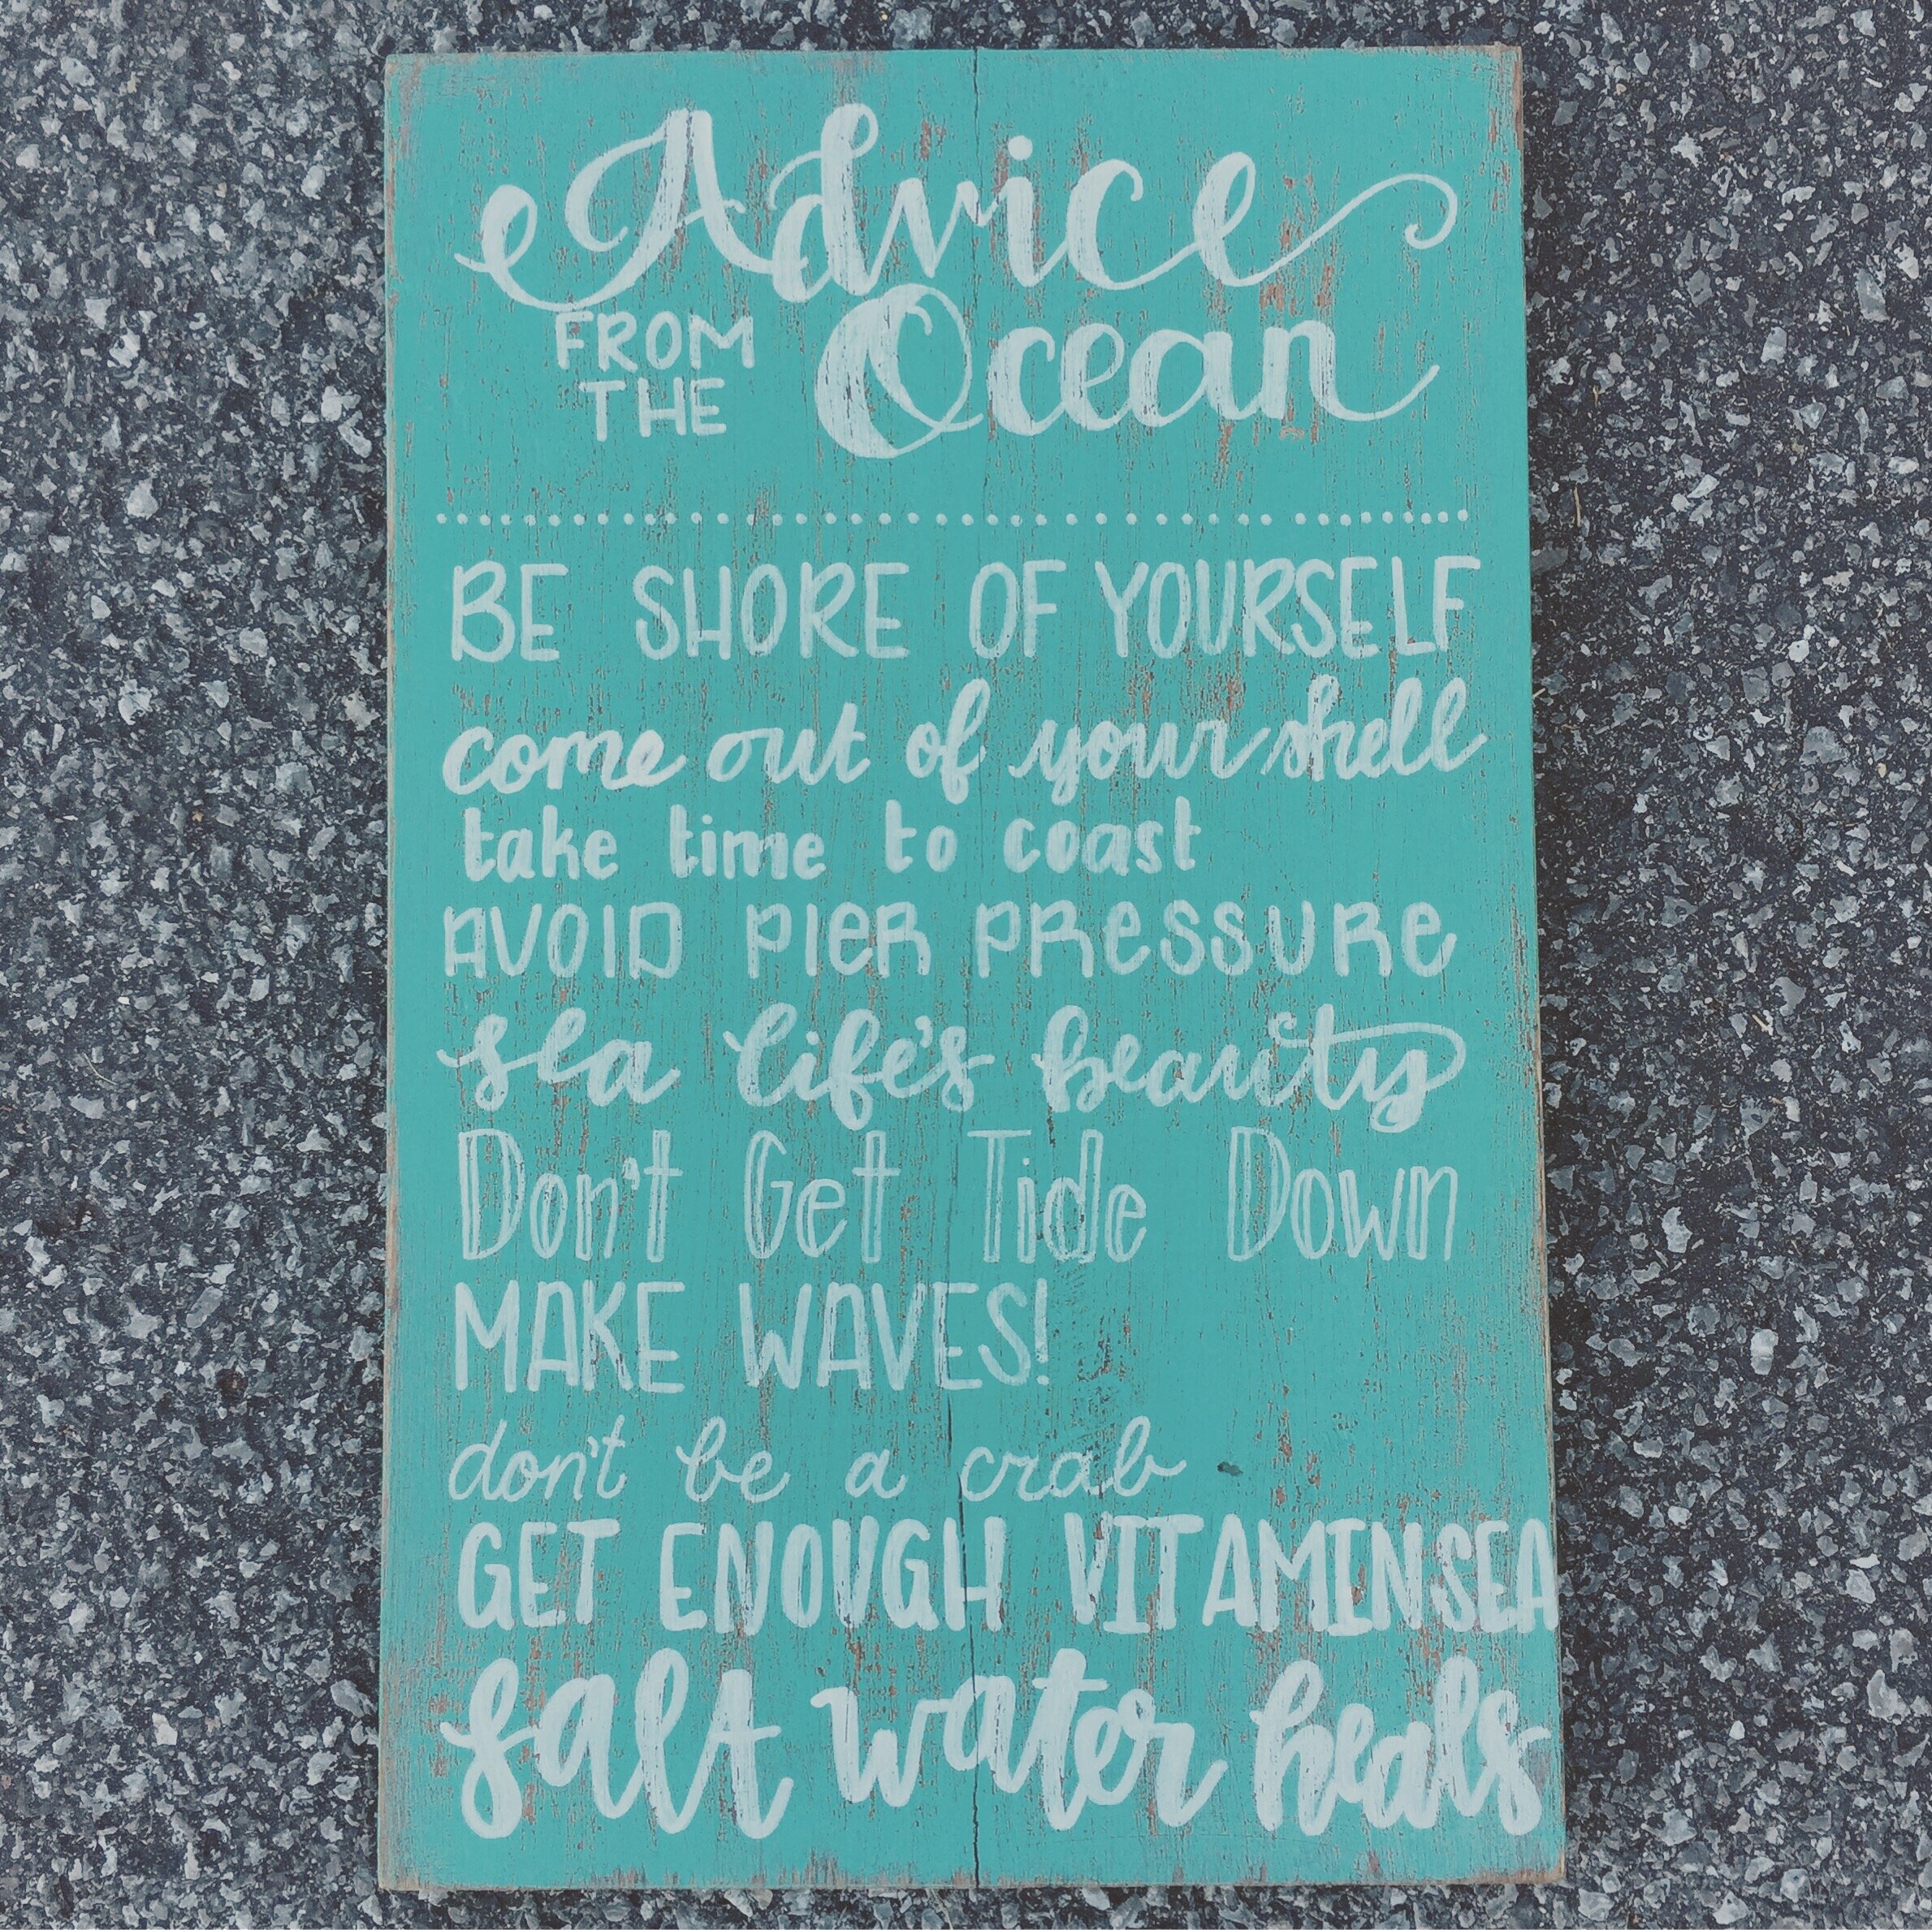 Advice
FROM
THE
Ocean
BE SHORE OF YOURSELF
come out of your shell
take time to coast
AVOID PIER PRESSURE
sea life's beauty
Don't Get Tide Down
MAKE WAVES!
don't be a crab
GET ENOUGH VITAMIN SEA
salt water heals